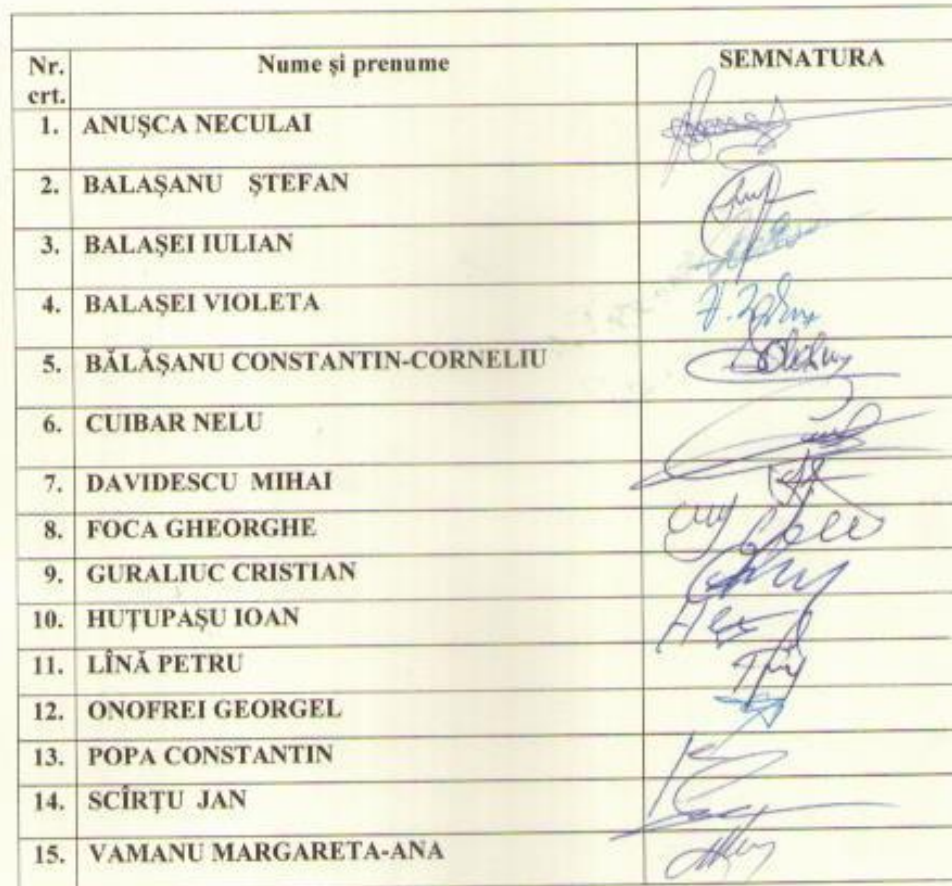 Nr. crt. Nume și prenume SEMNATURA
1. ANUȘCA NECULAI
2. BALAȘANU ȘTEFAN
3. BALAȘEI IULIAN
4. BALAȘEI VIOLETA
5. BĂLĂȘANU CONSTANTIN-CORNELIU
6. CUIBAR NELU
7. DAVIDESCU MIHAI
8. FOCA GHEORGHE
9. GURALIUC CRISTIAN
10. HUȚUPAȘU IOAN
11. LÎNĂ PETRU
12. ONOFREI GEORGEL
13. POPA CONSTANTIN
14. SCÎRȚU JAN
15. VAMANU MARGARETA-ANA